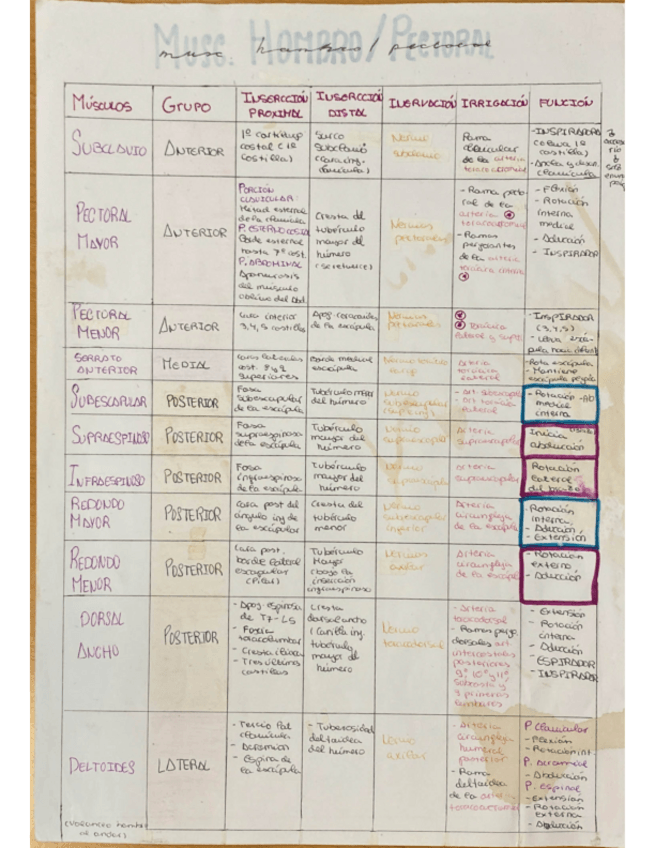 Musc. HOMBRO/PECTORAL
musc. hombro/pectoral
MÚSCULOS
GRUPO
INSERCCIÓN PROXIMAL
INSERCCIÓN DISTAL
INERVACIÓN
IRRIGACIÓN
FUNCIÓN
SUBCLAVIO
ANTERIOR
1º cartílago
costal (1ª
costilla)
Surco
Subclavio
Nervio
subclavio
Rama
clavicular
de la arteria
toracoacromial
-INSPIRADOR
costilla)
clavícula
PECTORAL
MAYOR
ANTERIOR
PORCIÓN
CLAVICULAR:
Mitad external
de la clavícula
P. ESTERNOCOSTAL
Borde external
hasta 7ª cost.
P. ABDOMINAL
Aponeurosis
del músculo
oblicuo del Abd.
Cresta del
tubérculo
mayor del
húmero
Nervios
pectorales
- Rama pecto
ral de la
arteria
toracoacromial
- Ramas
perforantes
de la arteria
torácica interna
- Flexión
- Rotación
interna
medial
- Aducción
- INSPIRADOR
PECTORAL
MENOR
ANTERIOR
Cara interior
3, 4, 5 costillas
Apóf. coracoides
de la escápula
Nervios
pectorales
Torácica
-INSPIRADOR
(3, 4, 5)
SERRATO
ANTERIOR
MEDIAL
Superiores
Borde medial
escápula
Arteria
torácica
-Rota escápula
- Mantiene
SUBESCAPULAR
POSTERIOR
Fosa
subescapular
de la escápula
Tubérculo menor
del húmero
Nervio
subescapular
- Rotación
medial
interna
SUPRAESPINOSO
POSTERIOR
Fosa
supraespinosa
de la escápula
Tubérculo
mayor del
húmero
Nervio
supraescapular
Arteria
supraescapular
Inicia
abducción
INFRAESPINOSO
POSTERIOR
Fosa
infraespinosa
de la escápula
Tubérculo
mayor del
húmero
Nervio
supraescapular
arteria
supraescapular
Rotación
lateral
del brazo
REDONDO
MAYOR
POSTERIOR
Cara post del
ángulo inf de
la escápula
Cresta del
tubérculo
menor
Nervio
subescapular
inferior
Arteria
circunfleja
de la escápula
- Rotación
interna,
- Aducción
- Extensión
REDONDO
MENOR
POSTERIOR
Cara post.
borde lateral
escapular
(Pilar)
Tubérculo
Mayor
(bajo la
inserción
infraespinoso
Nervios
axilar
Arteria
circunfleja
de la escápula
- Rotación
externa
- Aducción
DORSAL
ANCHO
POSTERIOR
- Apóf espinosa
de T7-L5
- Fascia
toracolumbar
- Cresta ilíaca
- Tres últimas
costillas
Cresta
dorsal ancho
tubérculo
mayor de
húmero
Nervio
toracodorsal
- Arteria
toracodorsal
- Ramas perfo.
dorsales art.
intercostales
posteriores
9º, 10º y 11º
subcosta y
3 primeras
lumbares
- Extensión
- Rotación
interna
- Aducción
- ESPIRADOR
- INSPIRADOR
DELTOIDES
LATERAL
- Tercio lat
clavícula
- Acromion
- Espina de
la escápula
- Tuberosidad
deltoidea
del húmero
Nervio
axilar
- Arteria
circunfleja
humeral
posterior
- Rama
deltoidea
de la arteria
toracoacromial
P. clavicular
- Flexión
- Rotación int
P. acromial
- Abducción
P. espinal
- Extensión
- Rotación
externa
- Aducción
al andar)